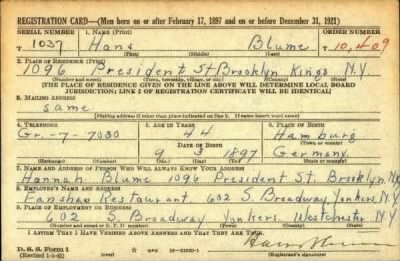 REGISTRATION CARD—(Men born on or after February 17, 1897 and on or before December 31, 1921)
SERIAL NUMBER 1. NAME (Print) ORDER NUMBER
T 1037 Hans Blume T 10,409
(First) (Middle) (Last)
2. PLACE OF RESIDENCE (Print)
1096 President St Brooklyn Kings N.Y
(Number and street) (Town, township, village, or city) (County) (State)
[THE PLACE OF RESIDENCE GIVEN ON THE LINE ABOVE WILL DETERMINE LOCAL BOARD
JURISDICTION; LINE 2 OF REGISTRATION CERTIFICATE WILL BE IDENTICAL]
3. MAILING ADDRESS
same
[Mailing address if other than place indicated on line 2. If same insert word same]
4. TELEPHONE 5. AGE IN YEARS 6. PLACE OF BIRTH
Gr.-7-7030 44 Hamburg
DATE OF BIRTH (Town or county)
9 3 1897 Germany
(Exchange) (Number) (Mo.) (Day) (Yr.) (State or country)
7. NAME AND ADDRESS OF PERSON WHO WILL ALWAYS KNOW YOUR ADDRESS
Hannah Blume 1096 President St. Brooklyn, N.Y
8. EMPLOYER'S NAME AND ADDRESS
Fanshaw Restaurant 602 S. Broadway Yonkers N.Y
9. PLACE OF EMPLOYMENT OR BUSINESS
602 S. Broadway Yonkers Westchester N.Y
(Number and street or R. F. D. number) (Town) (County) (State)
I AFFIRM THAT I HAVE VERIFIED ABOVE ANSWERS AND THAT THEY ARE TRUE.
D. S. S. Form 1
(Revised 1-1-42) (over)
(Registrant's signature)